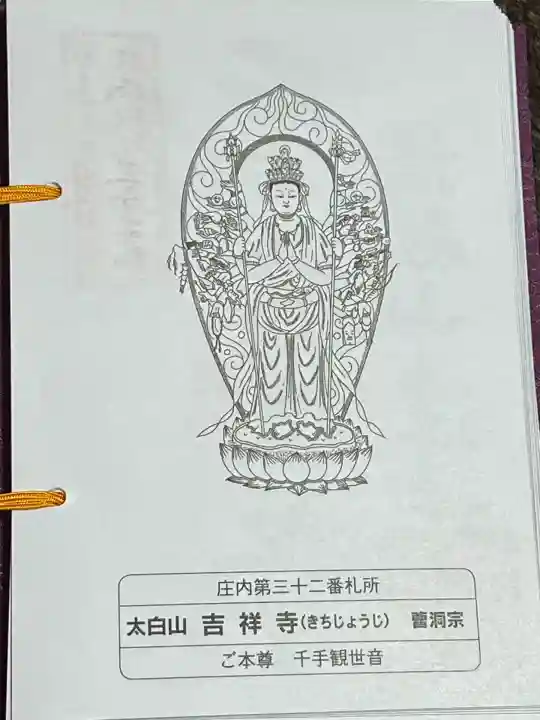 庄内第三十二番札所
太白山 吉祥寺(きちじょうじ) 曹洞宗
ご本尊 千手観世音